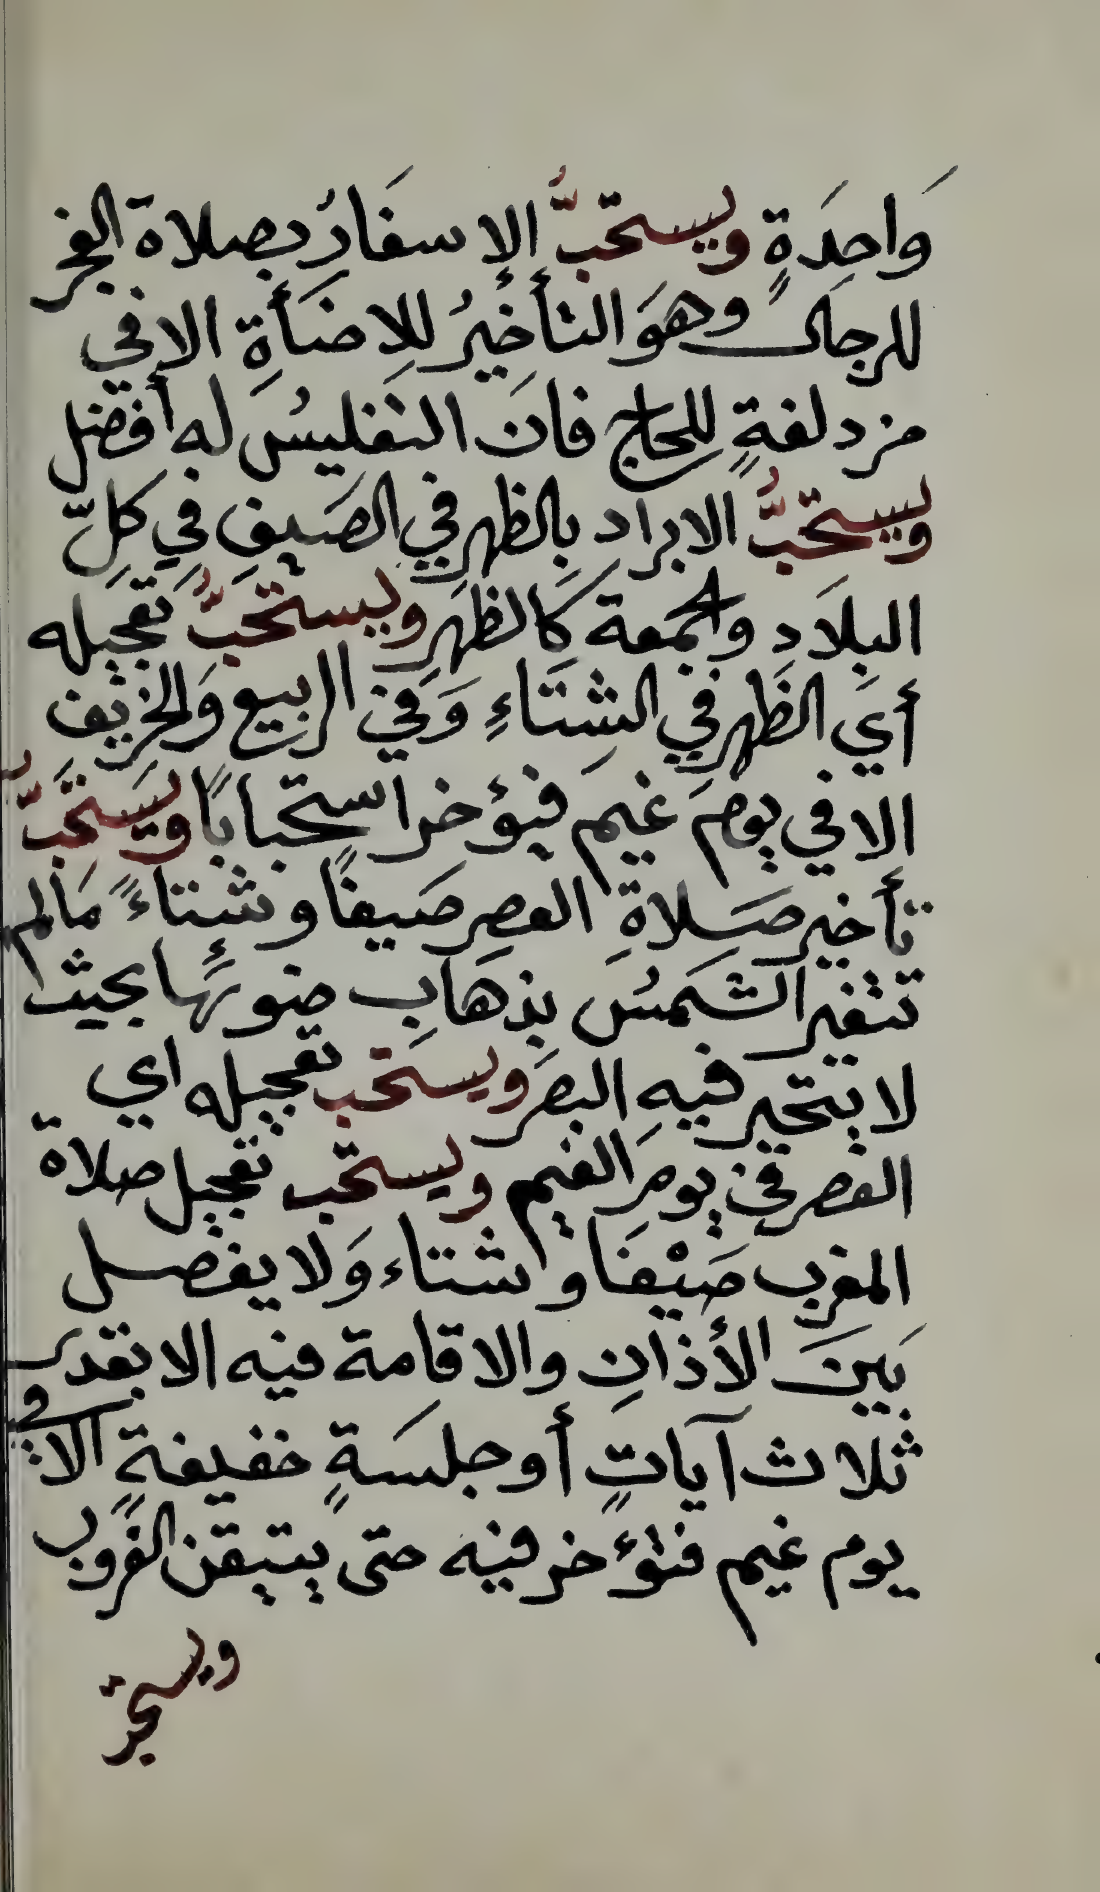 وَاحِدَةٍ ويستحبُّ الإسفَارُ بصلاة الفجر
للرجال وهوَ التأخيرُ للإِضَأَةِ الا في
مزدلفةٍ للحاج فانَ التغليسَ له أفضل
ويستحبُّ الابراد بالظهر في الصَيفِ في كلِّ
البلَاد والجمعة كالظهر ويستحبُّ تعجيله
أي الظهر في الشتَاءِ وَفي الربيع وَالخريف
الا في يومِ غيم فيؤخر استحبابًا ويستحبُّ
تأخير صَلاةِ العصر صَيفًا وشتاءً مَالم
تتغير الشمسُ بذهَابِ ضوئِهَا بحيث
لا يتحير فيهِ البصَر ويستحب تعجيله اي
العصر في يومِ الغيم ويستحب تعجيل صلاة
المغرب صَيْفَا وشتاء وَلا يفصل
بَينَ الأذانِ والاقامة فيه الا بقدر
ثلاث آياتٍ أو جلسَةٍ خفيفةٍ الا في
يوم غيم فتؤخر فيه حتى يتيقن الغروب
ويستحبُّ